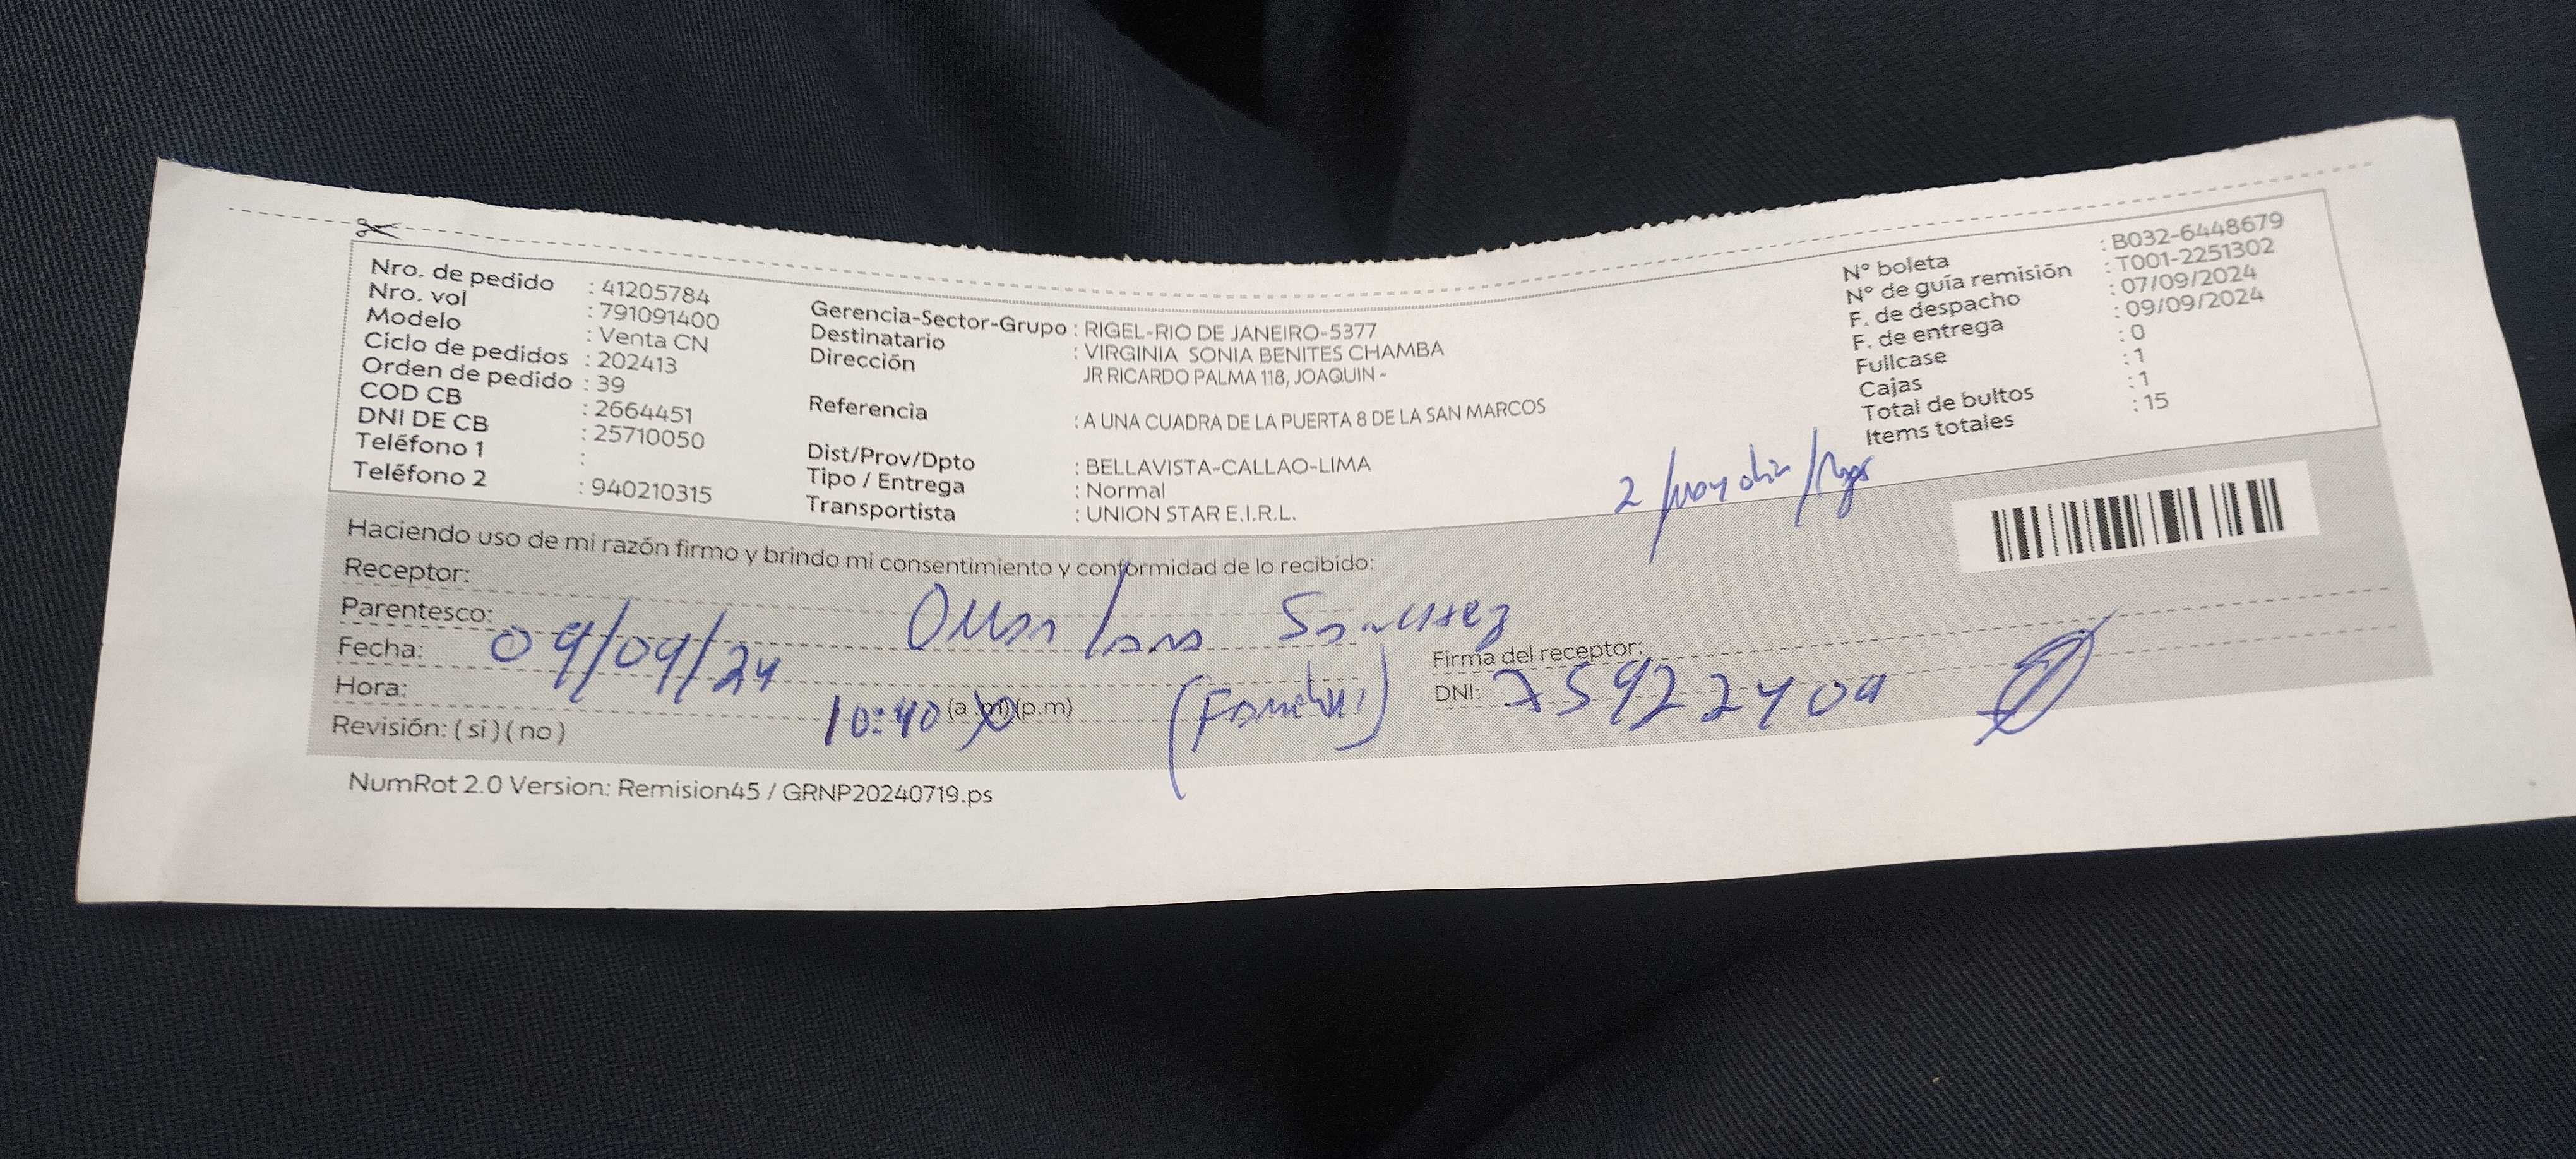 Nro. de pedido : 41205784
Nro. vol : 791091400
Modelo : Venta CN
Ciclo de pedidos : 202413
Orden de pedido : 39
COD CB : 2664451
DNI DE CB : 25710050
Teléfono 1 :
Teléfono 2 : 940210315
Gerencia-Sector-Grupo : RIGEL-RIO DE JANEIRO-5377
Destinatario : VIRGINIA SONIA BENITES CHAMBA
Dirección JR RICARDO PALMA 118, JOAQUIN -
Referencia : A UNA CUADRA DE LA PUERTA 8 DE LA SAN MARCOS
Dist/Prov/Dpto : BELLAVISTA-CALLAO-LIMA
Tipo / Entrega : Normal
Transportista : UNION STAR E.I.R.L.
N° boleta : B032-6448679
N° de guía remisión : T001-2251302
F. de despacho : 07/09/2024
F. de entrega : 09/09/2024
Fullcase : 0
Cajas : 1
Total de bultos : 1
Items totales : 15
2
Haciendo uso de mi razón firmo y brindo mi consentimiento y conformidad de lo recibido:
Receptor:
Parentesco:
Fecha: 09/09/24
Hora: 10:40 (a.m)(p.m)
Revisión: ( si ) ( no )
Firma del receptor:
DNI: 75922409
NumRot 2.0 Version: Remision45 / GRNP20240719.ps